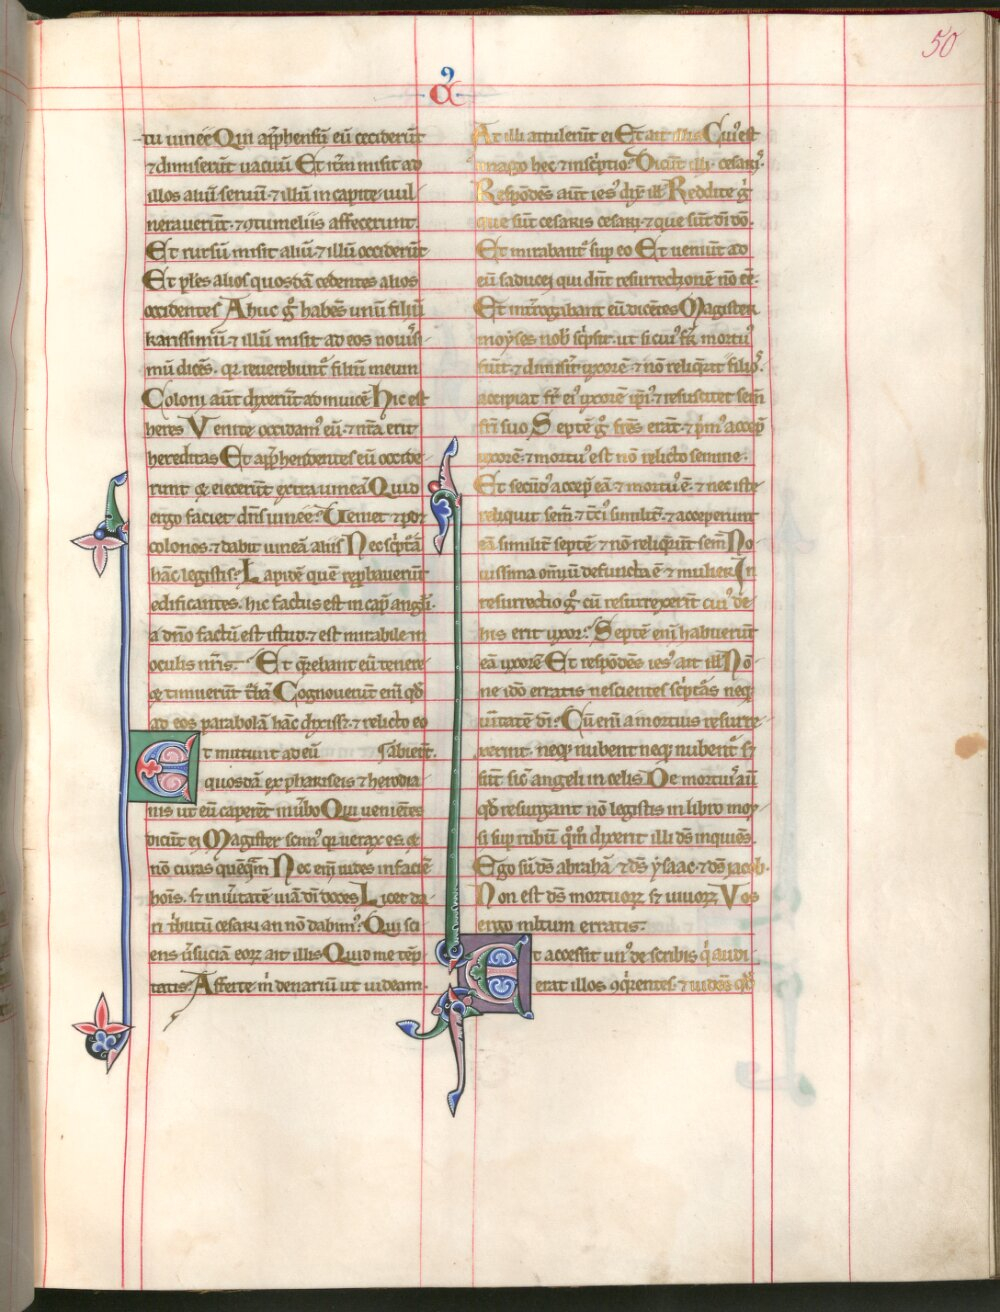 50
ꝰ
α
tu uineę Qui app̄hensū eū ceciderūt
⁊ dimiserūt uacuū Et itm̄ misit ad
illos aliū seruū ⁊ illū in capite uul
nerauerūt ⁊ ꝯtumeliis affecerunt
Et rursū misit aliū ⁊ illū occiderūt
Et pl̄es alios quosdā cedentes alios
occidentes Adhuc gͦ habēs unū filiū
karissimū ⁊ illū misit ad eos nouis
mū dicēs. qꝛ reuerebuntᷣ filiū meum
Coloni aūt dixerūt ad inuicē Hic est
heres Venite occidamꝰ eū ⁊ nr̄a erit
hereditas Et app̄hendentes eū occide
runt ⁊ eiecerūt extra uineā Quid
ergo faciet dn̄s uineę? Veniet ⁊ ꝑdet
colonos ⁊ dabit uineā aliis Nec sc̄pt̄ā
hāc legistis? Lapidē quē rep̄bauerūt
edificantes. hic factus est in cap̄ angl̄i.
a dn̄o factū est istud ⁊ est mirabile in
oculis nr̄is. Et q̄rebant eū tenere
⁊ timuerūt t̄bā Cognouerūt eni qd̄
ad eos parabolā hāc dixisꝫ ⁊ relicto eo
Et mittunt ad eū abierūt.
quosdā ex phariseis ⁊ herodia
nis ut eū caperēt in u̾bo Qui uenientes
dicūt ei Magister scimꝰ qꝛ uerax es. ⁊
nō curas quēq̄m Nec eni uides in faciē
hoīs. sꝫ in ueritate uiā dī doces Licet da
ri tributū cesari an nō dabimꝰ? Qui sci
ens u̾suciā eoꝝ ait illis Quid me tēp
tatis? Afferte m̄ denariū ut uideam
At illi attulerūt ei Et ait illis Cuiꝰ est
imago hec ⁊ inscp̄tio? Dicūt illi. cesaris.
Respōdēs aūt ies̄ dix̄ ill̄ Reddite gͥ
que sūt cesaris cesari. ⁊ que sūt dī dō.
Et mirabantᷣ sup eo Et ueniūt ad
eū saducei qui dn̄t resurrectionē nō eē.
Et int̄rogabant eū dicētes Magister
moyses nob̄ sc̄psit. ut si cuiꝰ fr̄ mortuꝰ
fuīt. ⁊ dimisit̄ uxorē ⁊ nō reliq̄rit filios.
accipiat fr̄ eiꝰ uxorē ip̄iꝰ ⁊ resuscitet sem̄
fr̄i suo Septē gͦ fr̄es erāt ⁊ p̄mꝰ accep̄
uxorē ⁊ mortuꝰ est nō relicto semine.
Et secūdꝰ accep̄ eā ⁊ mortuꝰ ē ⁊ nec iste
reliquit sem̄ ⁊ tc̄iꝰ similit̄. ⁊ acceperunt
eā similit̄ septē ⁊ nō reliq̄rūt sem̄ No
uissima om̄iū defuncta ē ⁊ mulier In
resurrectio gͦ cū resurrexerīt cuiꝰ de
his erit uxor? Septē eni habuerūt
eā uxorē Et respōdēs ies̄ ait ill̄ Nō
ne ido erratis nescientes sc̄pt̄as neqꝫ
u̾tutem dī? Cū eni a mortuis resurre
xerint. neqꝫ nubent neqꝫ nubentᷣ sꝫ
sūt sic̄ angeli in celis De mortuis aū
qd̄ resurgant nō legistis in libro moy
si sup rubū qm̄ dixerit illi ds̄ inquiēs
Ego sū ds̄ abrahā ⁊ ds̄ ysaac ⁊ ds̄ jacob.
Non est ds̄ mortuoꝝ sꝫ uiuoꝝ Vos
ergo mltum erratis.
Et accessit unꝰ de scribis qͥ audi
erat illos ꝯq̄rentes ⁊ uidēs qd̄